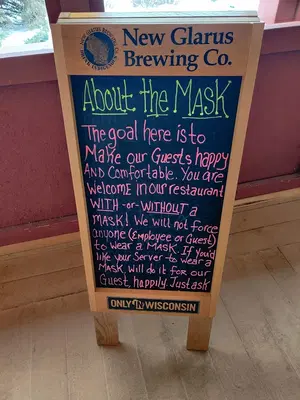 New Glarus
Brewing Co.
About the MASK
The goal here is to
Make our Guests happy
AND Comfortable. You are
Welcome in our restaurant
WITH -or- WITHOUT a
MASK! We will not force
anyone (Employee or Guest)
to wear a MASK. If You'd
like your Server to wear a
MASK, will do it for our
Guest, happily Just ask
ONLY IN WISCONSIN